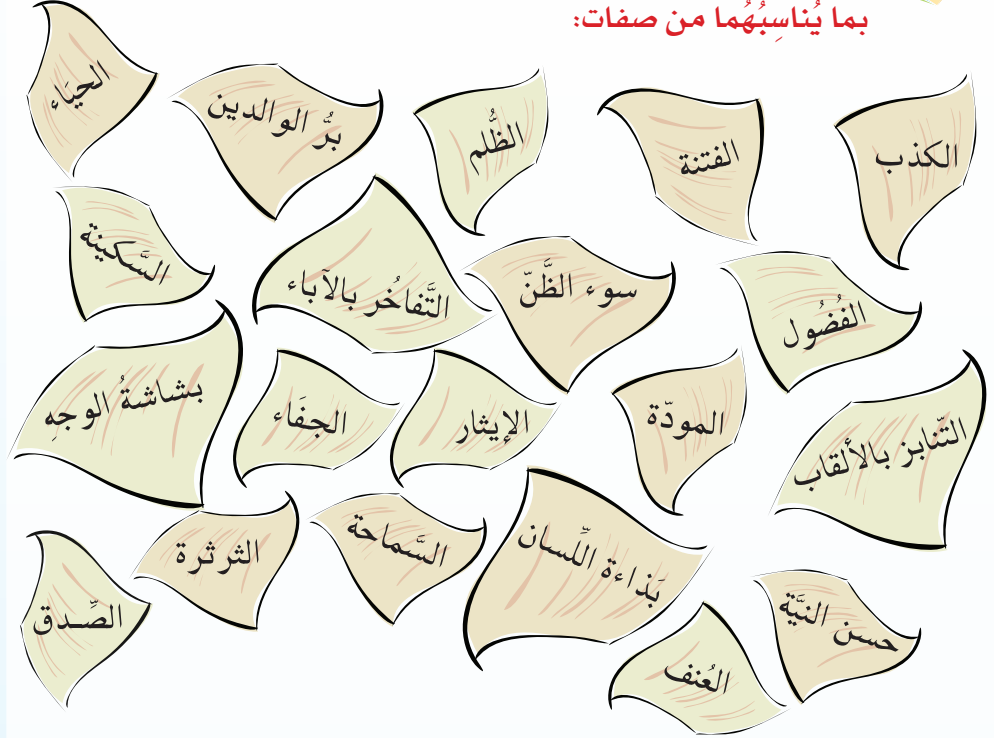 بما يُناسِبُهُما من صفات:
الكذب
الفتنة
الظُّلم
برُّ الوالدين
الحيَاء
الفُضُول
سوء الظَّنّ
التَّفاخُر بالآباء
السَّكينة
التّنابز بالألقاب
المودّة
الإيثار
الجفَاء
بشاشةُ الوجهِ
بَذاءة اللّسان
السَّماحة
الثرثرة
الصِّدق
حسن النيَّة
العُنف